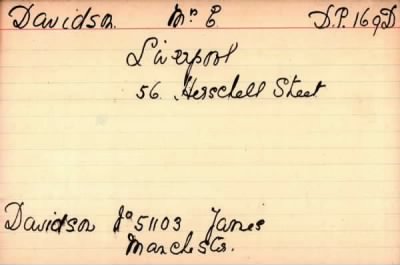 Davidson. Mrs E D.P. 169D
Liverpool
56. Herschell Street
Davidson Jo 51103 James
Manchester.